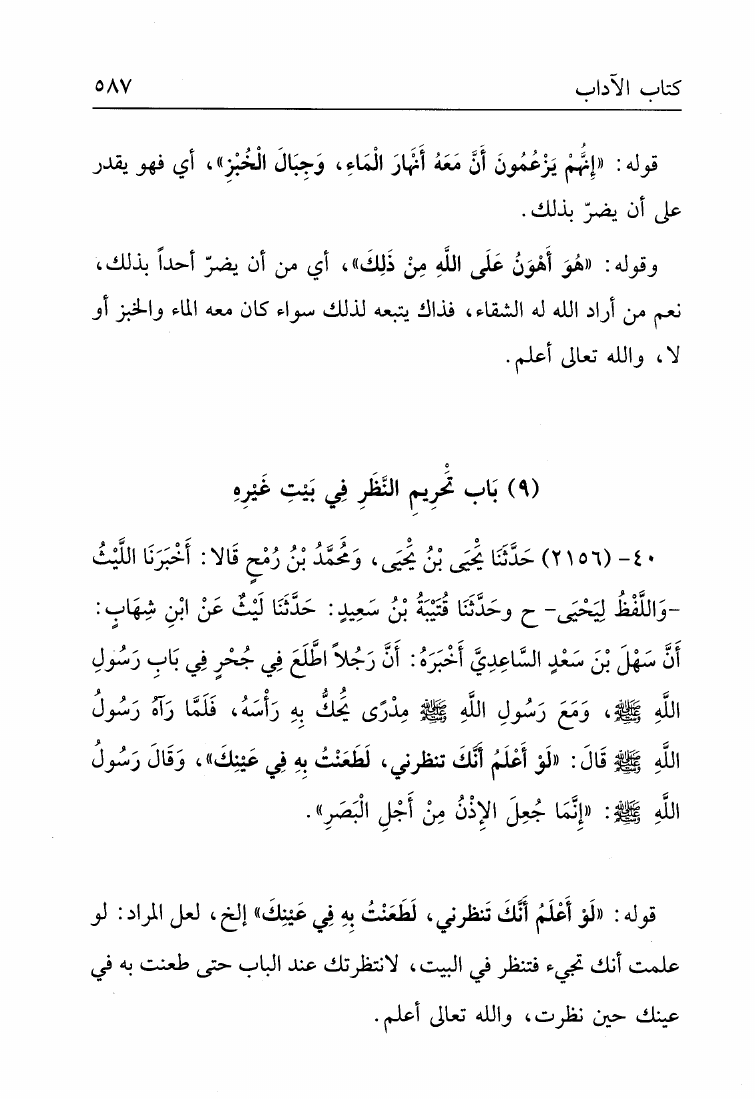 كتاب الآداب ٥٨٧
قوله: «إِنَّهُمْ يَزْعُمُونَ أَنَّ مَعَهُ أَنْهَارَ الْمَاءِ، وَجِبَالَ الْخُبْزِ»، أي فهو يقدر
على أن يضرّ بذلك.
وقوله: «هُوَ أَهْوَنُ عَلَى اللَّهِ مِنْ ذَلِكَ»، أي من أن يضرّ أحداً بذلك،
نعم من أراد الله له الشقاء، فذاك يتبعه لذلك سواء كان معه الماء والخبز أو
لا، والله تعالى أعلم.
(٩) بَاب تَحْرِيمِ النَّظَرِ فِي بَيْتِ غَيْرِهِ
٤٠- (٢١٥٦) حَدَّثَنَا يَحْيَى بْنُ يَحْيَى، وَمُحَمَّدُ بْنُ رُمْحٍ قَالا: أَخْبَرَنَا اللَّيْثُ
-وَاللَّفْظُ لِيَحْيَى- ح وحَدَّثَنَا قُتَيْبَةُ بْنُ سَعِيدٍ: حَدَّثَنَا لَيْثٌ عَنْ ابْنِ شِهَابٍ:
أَنَّ سَهْلَ بْنَ سَعْدٍ السَّاعِدِيَّ أَخْبَرَهُ: أَنَّ رَجُلاً اطَّلَعَ فِي جُحْرٍ فِي بَابِ رَسُولِ
اللَّهِ ﷺ، وَمَعَ رَسُولِ اللَّهِ ﷺ مِدْرًى يَحُكُّ بِهِ رَأْسَهُ، فَلَمَّا رَآهُ رَسُولُ
اللَّهِ ﷺ قَالَ: «لَوْ أَعْلَمُ أَنَّكَ تنظرني، لَطَعَنْتُ بِهِ فِي عَيْنِكَ»، وَقَالَ رَسُولُ
اللَّهِ ﷺ: «إِنَّمَا جُعِلَ الإِذْنُ مِنْ أَجْلِ الْبَصَرِ».
قوله: «لَوْ أَعْلَمُ أَنَّكَ تَنظرني، لَطَعَنْتُ بِهِ فِي عَيْنِكَ» إلخ، لعل المراد: لو
علمت أنك تجيء فتنظر في البيت، لانتظرتك عند الباب حتى طعنت به في
عينك حين نظرت، والله تعالى أعلم.